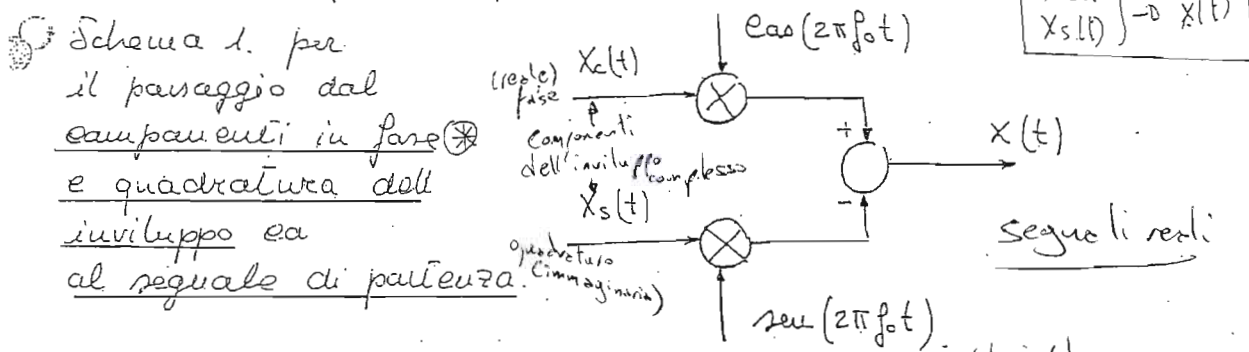 Schema 1. per
il passaggio dal
componenti in fase ⊛
e quadratura dell
inviluppo co
al segnale di partenza.
(reale)
fase
Xc(t)
componenti
dell'inviluppo complesso
Xs(t)
quadratura
(immaginaria)
cos(2πf₀t)
sen(2πf₀t)
+
-
X(t)
segnali reali
Xs(t) → X(t)